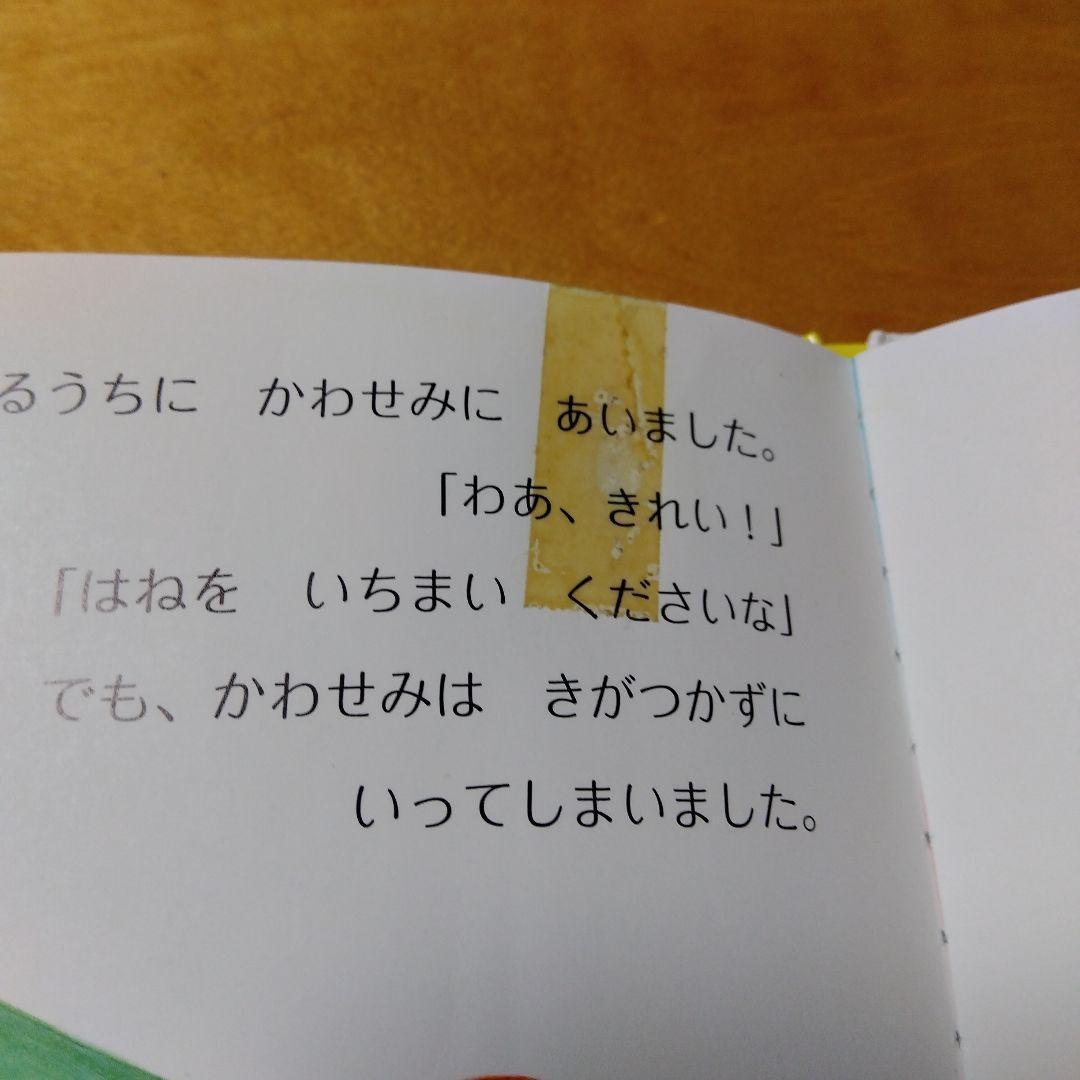 るうちに　かわせみに　あいました。
「わあ、きれい！」
「はねを　いちまい　くださいな」
でも、かわせみは　きがつかずに
いってしまいました。